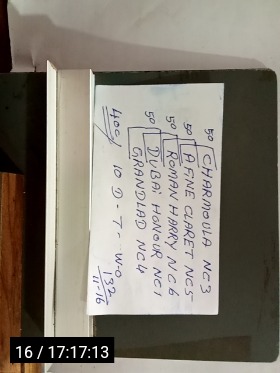 50 CHARMOULA NC3
50 A FINE CLARET NC5
50 ROMAN HARRY NC6
50 DUBAI HONOUR NC1
GRANDLAD NC4
400/ 10 D - T - W-0
132
11-16
16 / 17:17:13